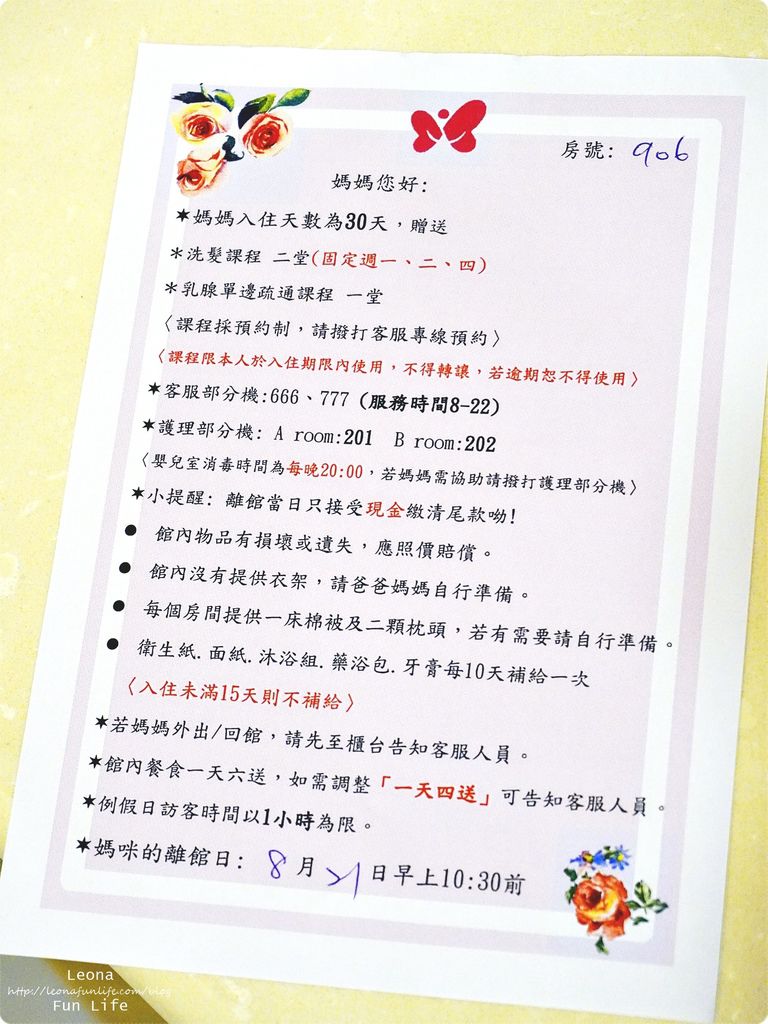 房號: 906
媽媽您好:
✶媽媽入住天數為30天，贈送
＊洗髮課程 二堂(固定週一、二、四)
＊乳腺單邊疏通課程 一堂
〈課程採預約制，請撥打客服專線預約〉
〈課程限本人於入住期限內使用，不得轉讓，若逾期恕不得使用〉
✶客服部分機:666、777 (服務時間8-22)
✶護理部分機: A room:201 B room:202
〈嬰兒室消毒時間為每晚20:00，若媽媽需協助請撥打護理部分機〉
✶小提醒: 離館當日只接受現金繳清尾款呦!
● 館內物品有損壞或遺失，應照價賠償。
● 館內沒有提供衣架，請爸爸媽媽自行準備。
● 每個房間提供一床棉被及二顆枕頭，若有需要請自行準備。
● 衛生紙.面紙.沐浴組.藥浴包.牙膏每10天補給一次
〈入住未滿15天則不補給〉
✶若媽媽外出/回館，請先至櫃台告知客服人員。
✶館內餐食一天六送，如需調整「一天四送」可告知客服人員。
✶例假日訪客時間以1小時為限。
✶媽咪的離館日: 8月21日早上10:30前
Leona
http://leonafunlife.com/blog
Fun Life